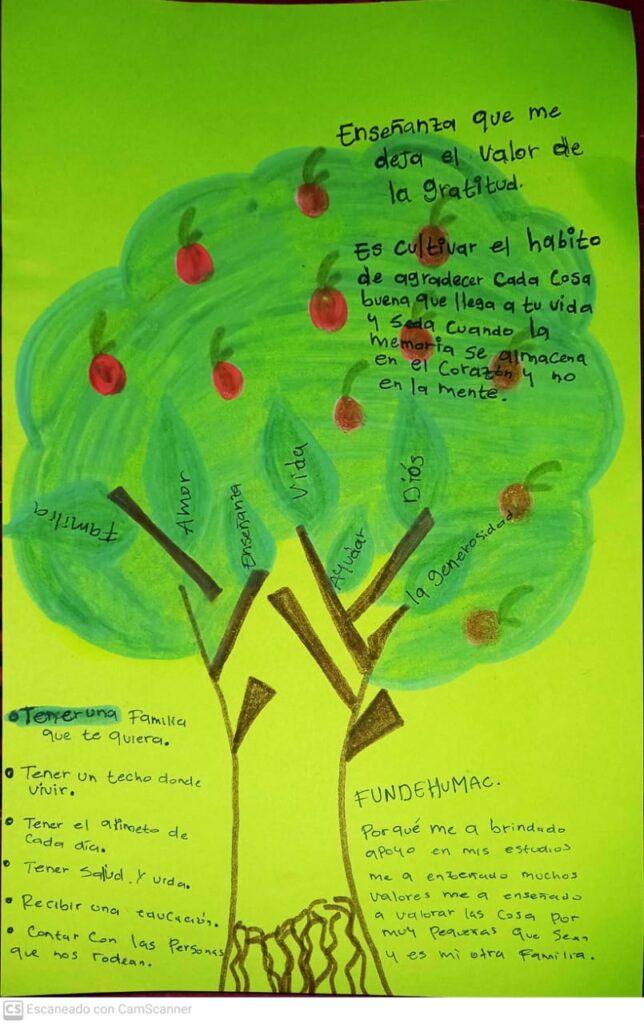 Enseñanza que me
deja el valor de
la gratitud.
Es cultivar el habito
de agradecer cada cosa
buena que llega a tu vida
y seda cuando la
memoria se almacena
en el corazón y no
en la mente.
Familia
Amor
Enseñanza
Vida
Ayudar
Diós
la generosidad
• Tener una Familia
que te quiera.
• Tener un techo donde
vivir.
• Tener el alimeto de
cada día.
• Tener salud y vida.
• Recibir una educación.
• Contar con las Personas
que nos rodean.
FUNDEHUMAC.
Porqué me a brindado
apoyo en mis estudios
me a enzeñado muchos
valores me a enseñado
a valorar las cosa por
muy pequeñas que sean
y es mi otra familia.
CS Escaneado con CamScanner